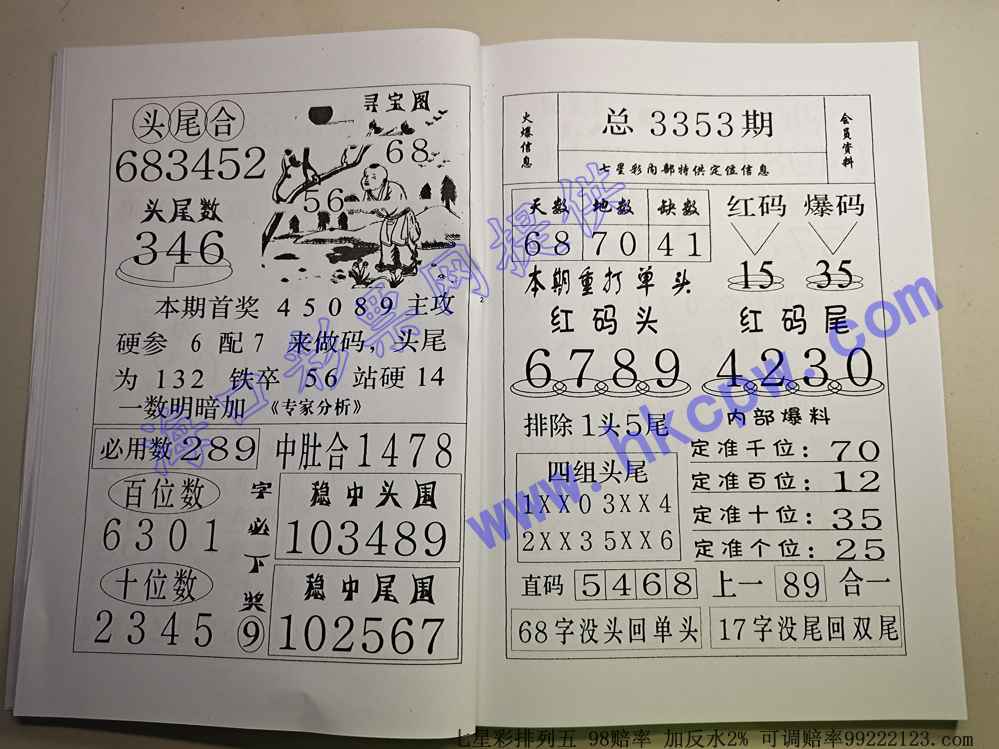 头尾合
683452
头尾数
346
寻宝图
68
56
本期首奖 45089 主攻
硬参 6 配 7 来做码，头尾
为 132 铁卒 56 站硬 14
一数明暗加 《专家分析》
必用数 289
中肚合 1478
百位数
6301
十位数
2345
字必下奖
9
稳中头围
103489
稳中尾围
102567
火爆信息
总 3353 期
七星彩内部特供定位信息
会员资料
天数 地数 缺数
68 70 41
红码 爆码
15 35
本期重打单头
红码头
6789
红码尾
4230
排除1头5尾
四组头尾
1XX0 3XX4
2XX3 5XX6
内部爆料
定准千位：70
定准百位：12
定准十位：35
定准个位：25
直码 5468 上一 89 合一
68字没头回单头
17字没尾回双尾
海口彩票网提供
www.hkcpw.com
七星彩排列五 98赔率 加反水2% 可调赔率99222123.com